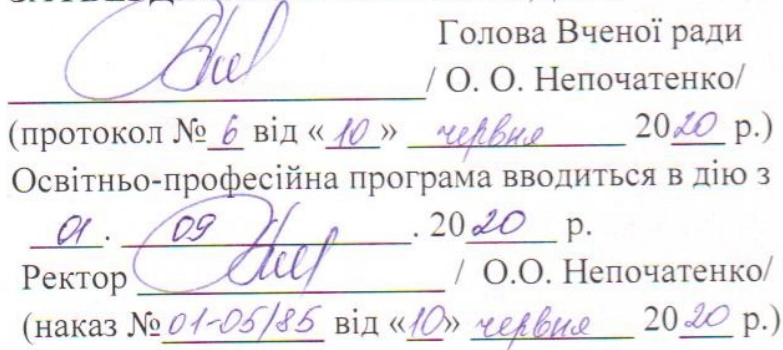 Голова Вченої ради
/ О. О. Непочатенко/
(протокол № 6 від «10» червня 2020 р.)
Освітньо-професійна програма вводиться в дію з
01. 09 . 2020 р.
Ректор / О.О. Непочатенко/
(наказ № 01-05/85 від «10» червня 2020 р.)